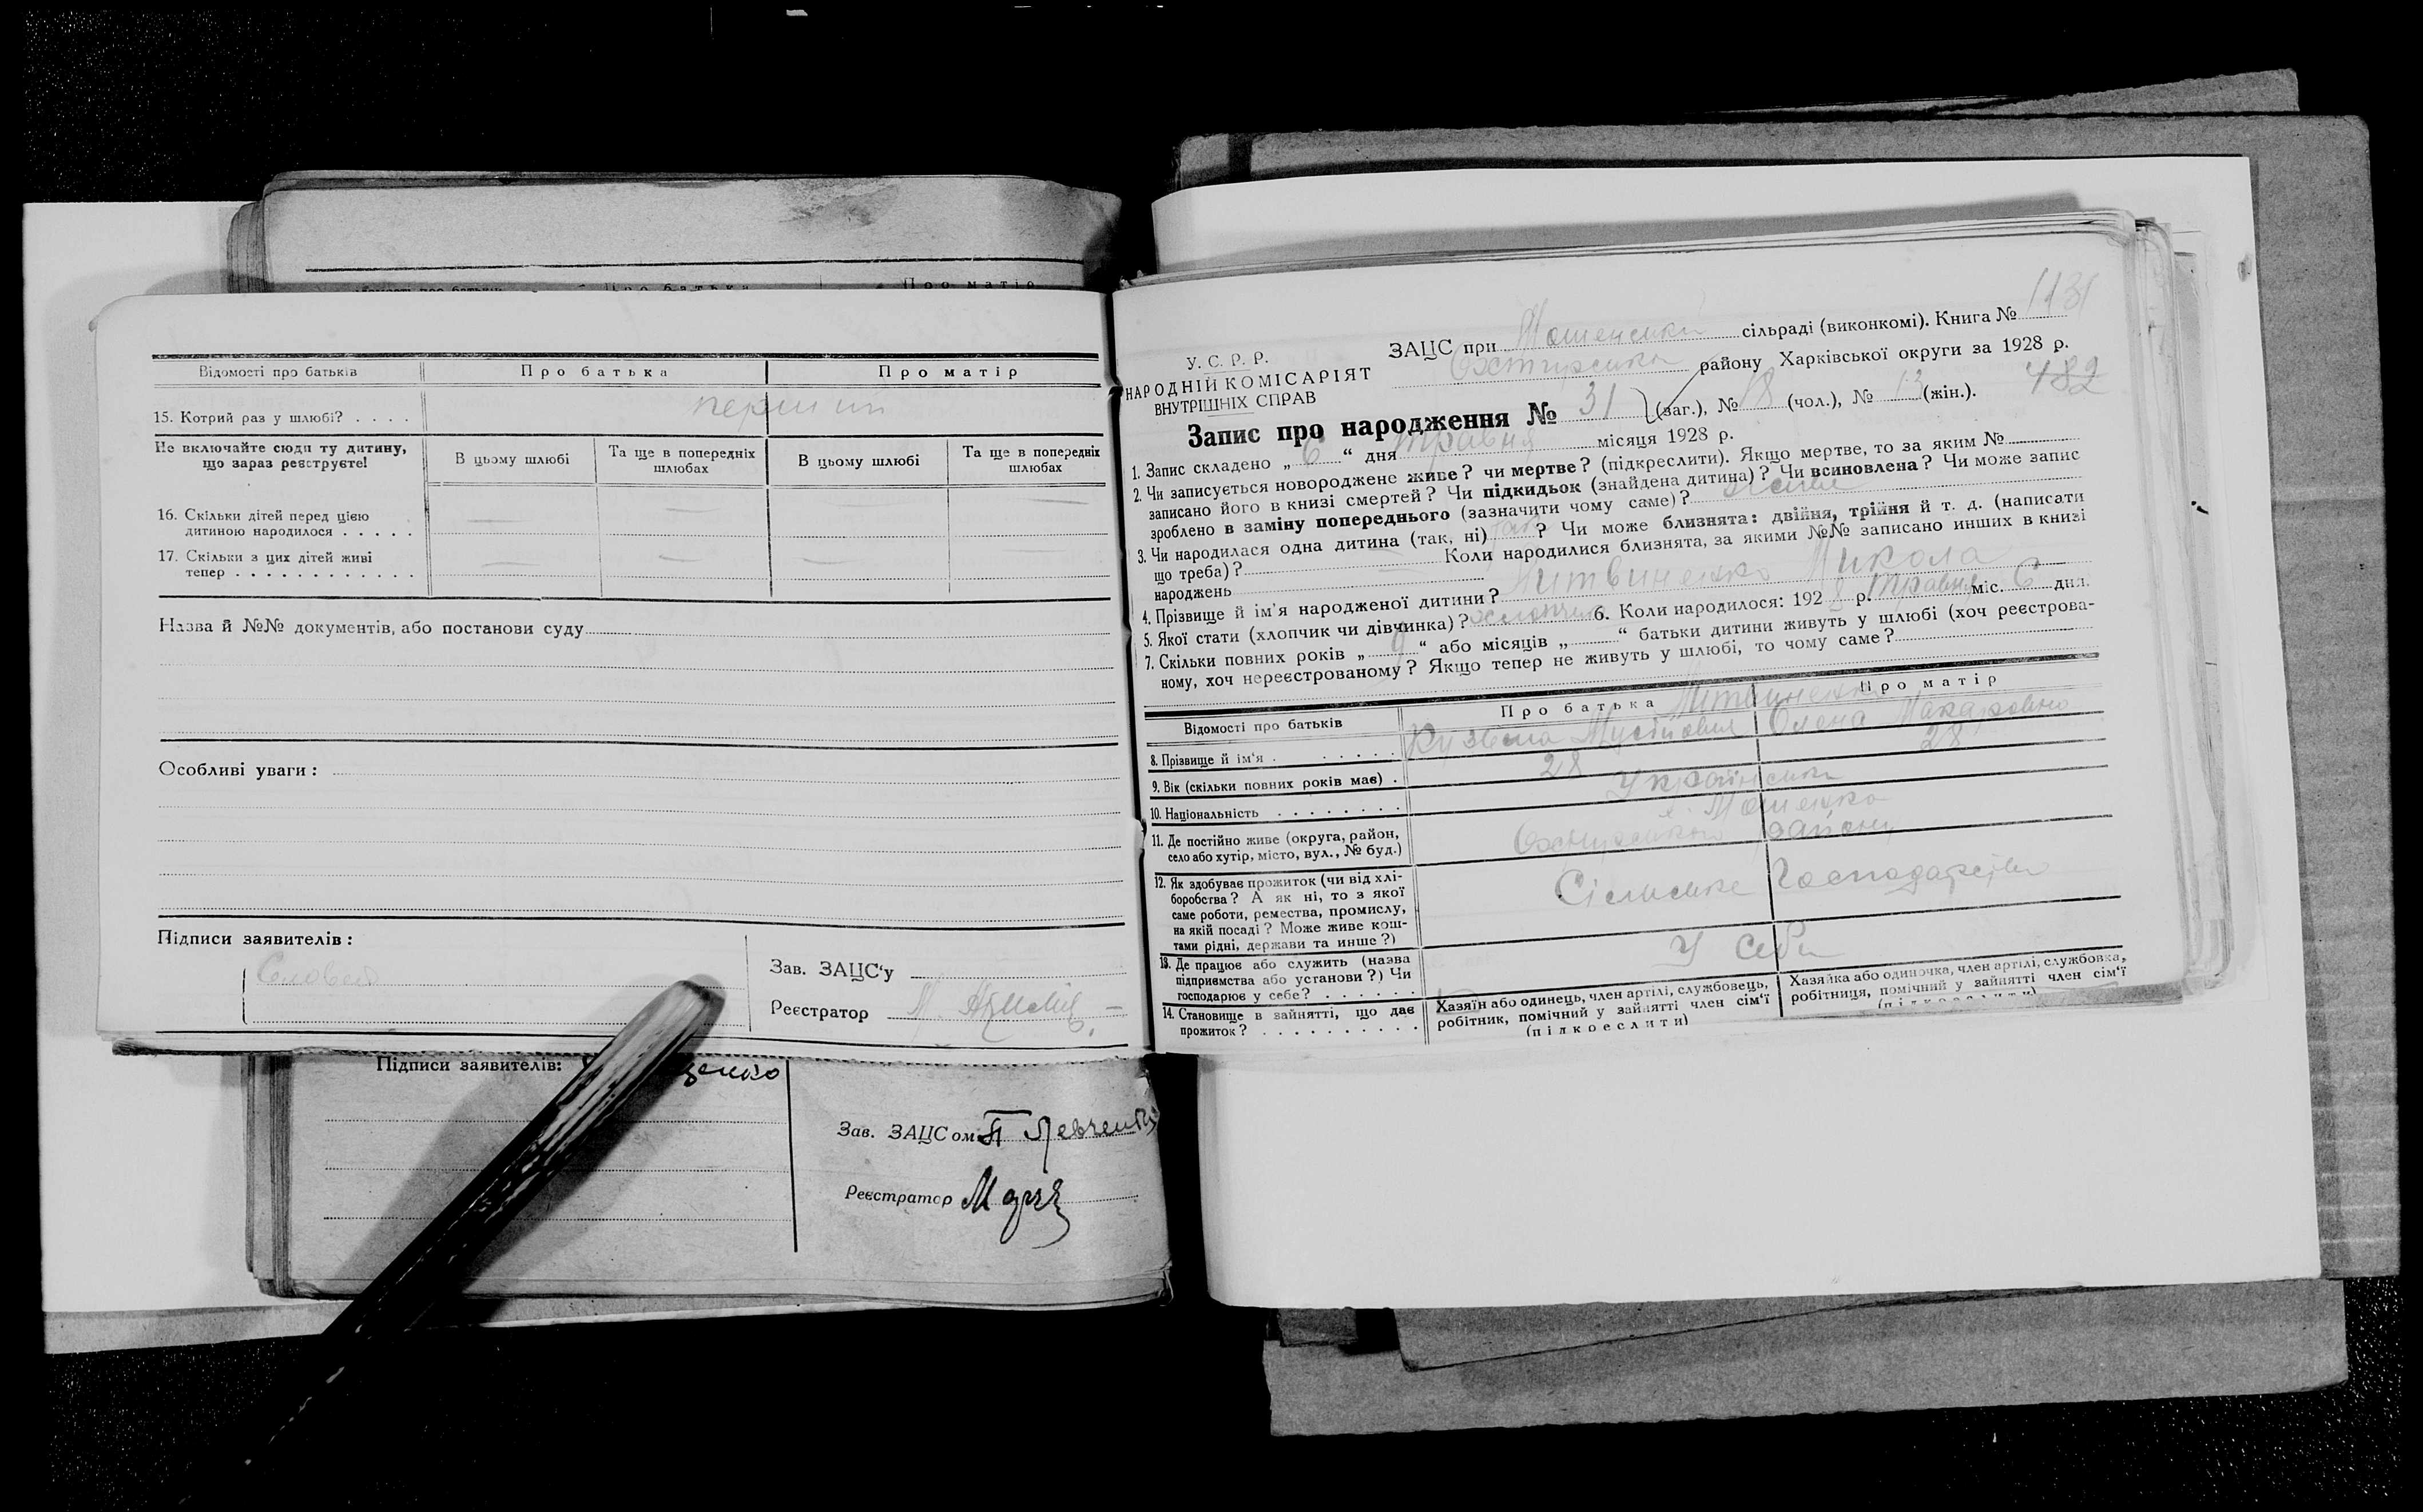 Відомості про батьків
Про батька
Про матір
15. Котрий раз у шлюбі? . . . .
перший
Не включайте сюди ту дитину,
що зараз реєструєте!
В цьому шлюбі
Та ще в попередніх
шлюбах
В цьому шлюбі
Та ще в попередніх
шлюбах
16. Скільки дітей перед цією
дитиною народилося . . . . .
17. Скільки з цих дітей живі
тепер . . . . . . . . . . . .
Назва й №№ документів, або постанови суду
Особливі уваги:
Підписи заявителів:
Зав. ЗАЦС‘у
Реєстратор
Підписи заявителів:
Зав. ЗАЦСом П Левченко
Реєстратор
1131
У. С. Р. Р.
НАРОДНІЙ КОМІСАРІЯТ
ВНУТРІШНІХ СПРАВ
ЗАЦС при сільраді (виконкомі). Книга №
Охтирська району Харківської округи за 1928 р.
482
Запис про народження № 31 (заг.), № 18 (чол.), № 13 (жін.).
1. Запис складено „ 6 “ дня травня місяця 1928 р.
2. Чи записується новороджене живе? чи мертве? (підкреслити). Якщо мертве, то за яким №
записано його в книзі смертей? Чи підкидьок (знайдена дитина)? Чи всиновлена? Чи може запис
зроблено в заміну попереднього (зазначити чому саме)?
3. Чи народилася одна дитина (так, ні) так ? Чи може близнята: двійня, трійня й т. д. (написати
що треба)? — Коли народилися близнята, за якими №№ записано инших в книзі
народжень
4. Прізвище й ім‘я народженої дитини? Литвиненко Микола
5. Якої стати (хлопчик чи дівчинка)? хлопчик 6. Коли народилося: 192 8 р. травня міс. 6 дня.
7. Скільки повних років „ “ або місяців „ “ батьки дитини живуть у шлюбі (хоч реєстрова-
ному, хоч нереєстрованому? Якщо тепер не живуть у шлюбі, то чому саме?
Відомості про батьків
Про батька
Про матір
Литвиненко
8. Прізвище й ім‘я . . . . .
Кузьма Мусійович
Олена Макаровна
9. Вік (скільки повних років має) .
28
28
10. Національність . . . . . . .
Українська
11. Де постійно живе (округа, район,
село або хутір, місто, вул., № буд.)
Охтирського району
12. Як здобуває прожиток (чи від хлі-
боробства? А як ні, то з якої
саме роботи, ремества, промислу,
на якій посаді? Може живе кош-
тами рідні, держави та инше?)
Сільське Господарство
13. Де працює або служить (назва
підприємства або установи?) Чи
господарює у себе? . . . . . .
У себе
14. Становище в зайнятті, що дає
прожиток? . . . . . . . . . .
Хазяїн або одинець, член артілі, службовець,
робітник, помічний у зайнятті член сім‘ї
(підкреслити)
Хазяйка або одиночка, член артілі, службовка,
робітниця, помічний у зайнятті член сім‘ї
(підкреслити)